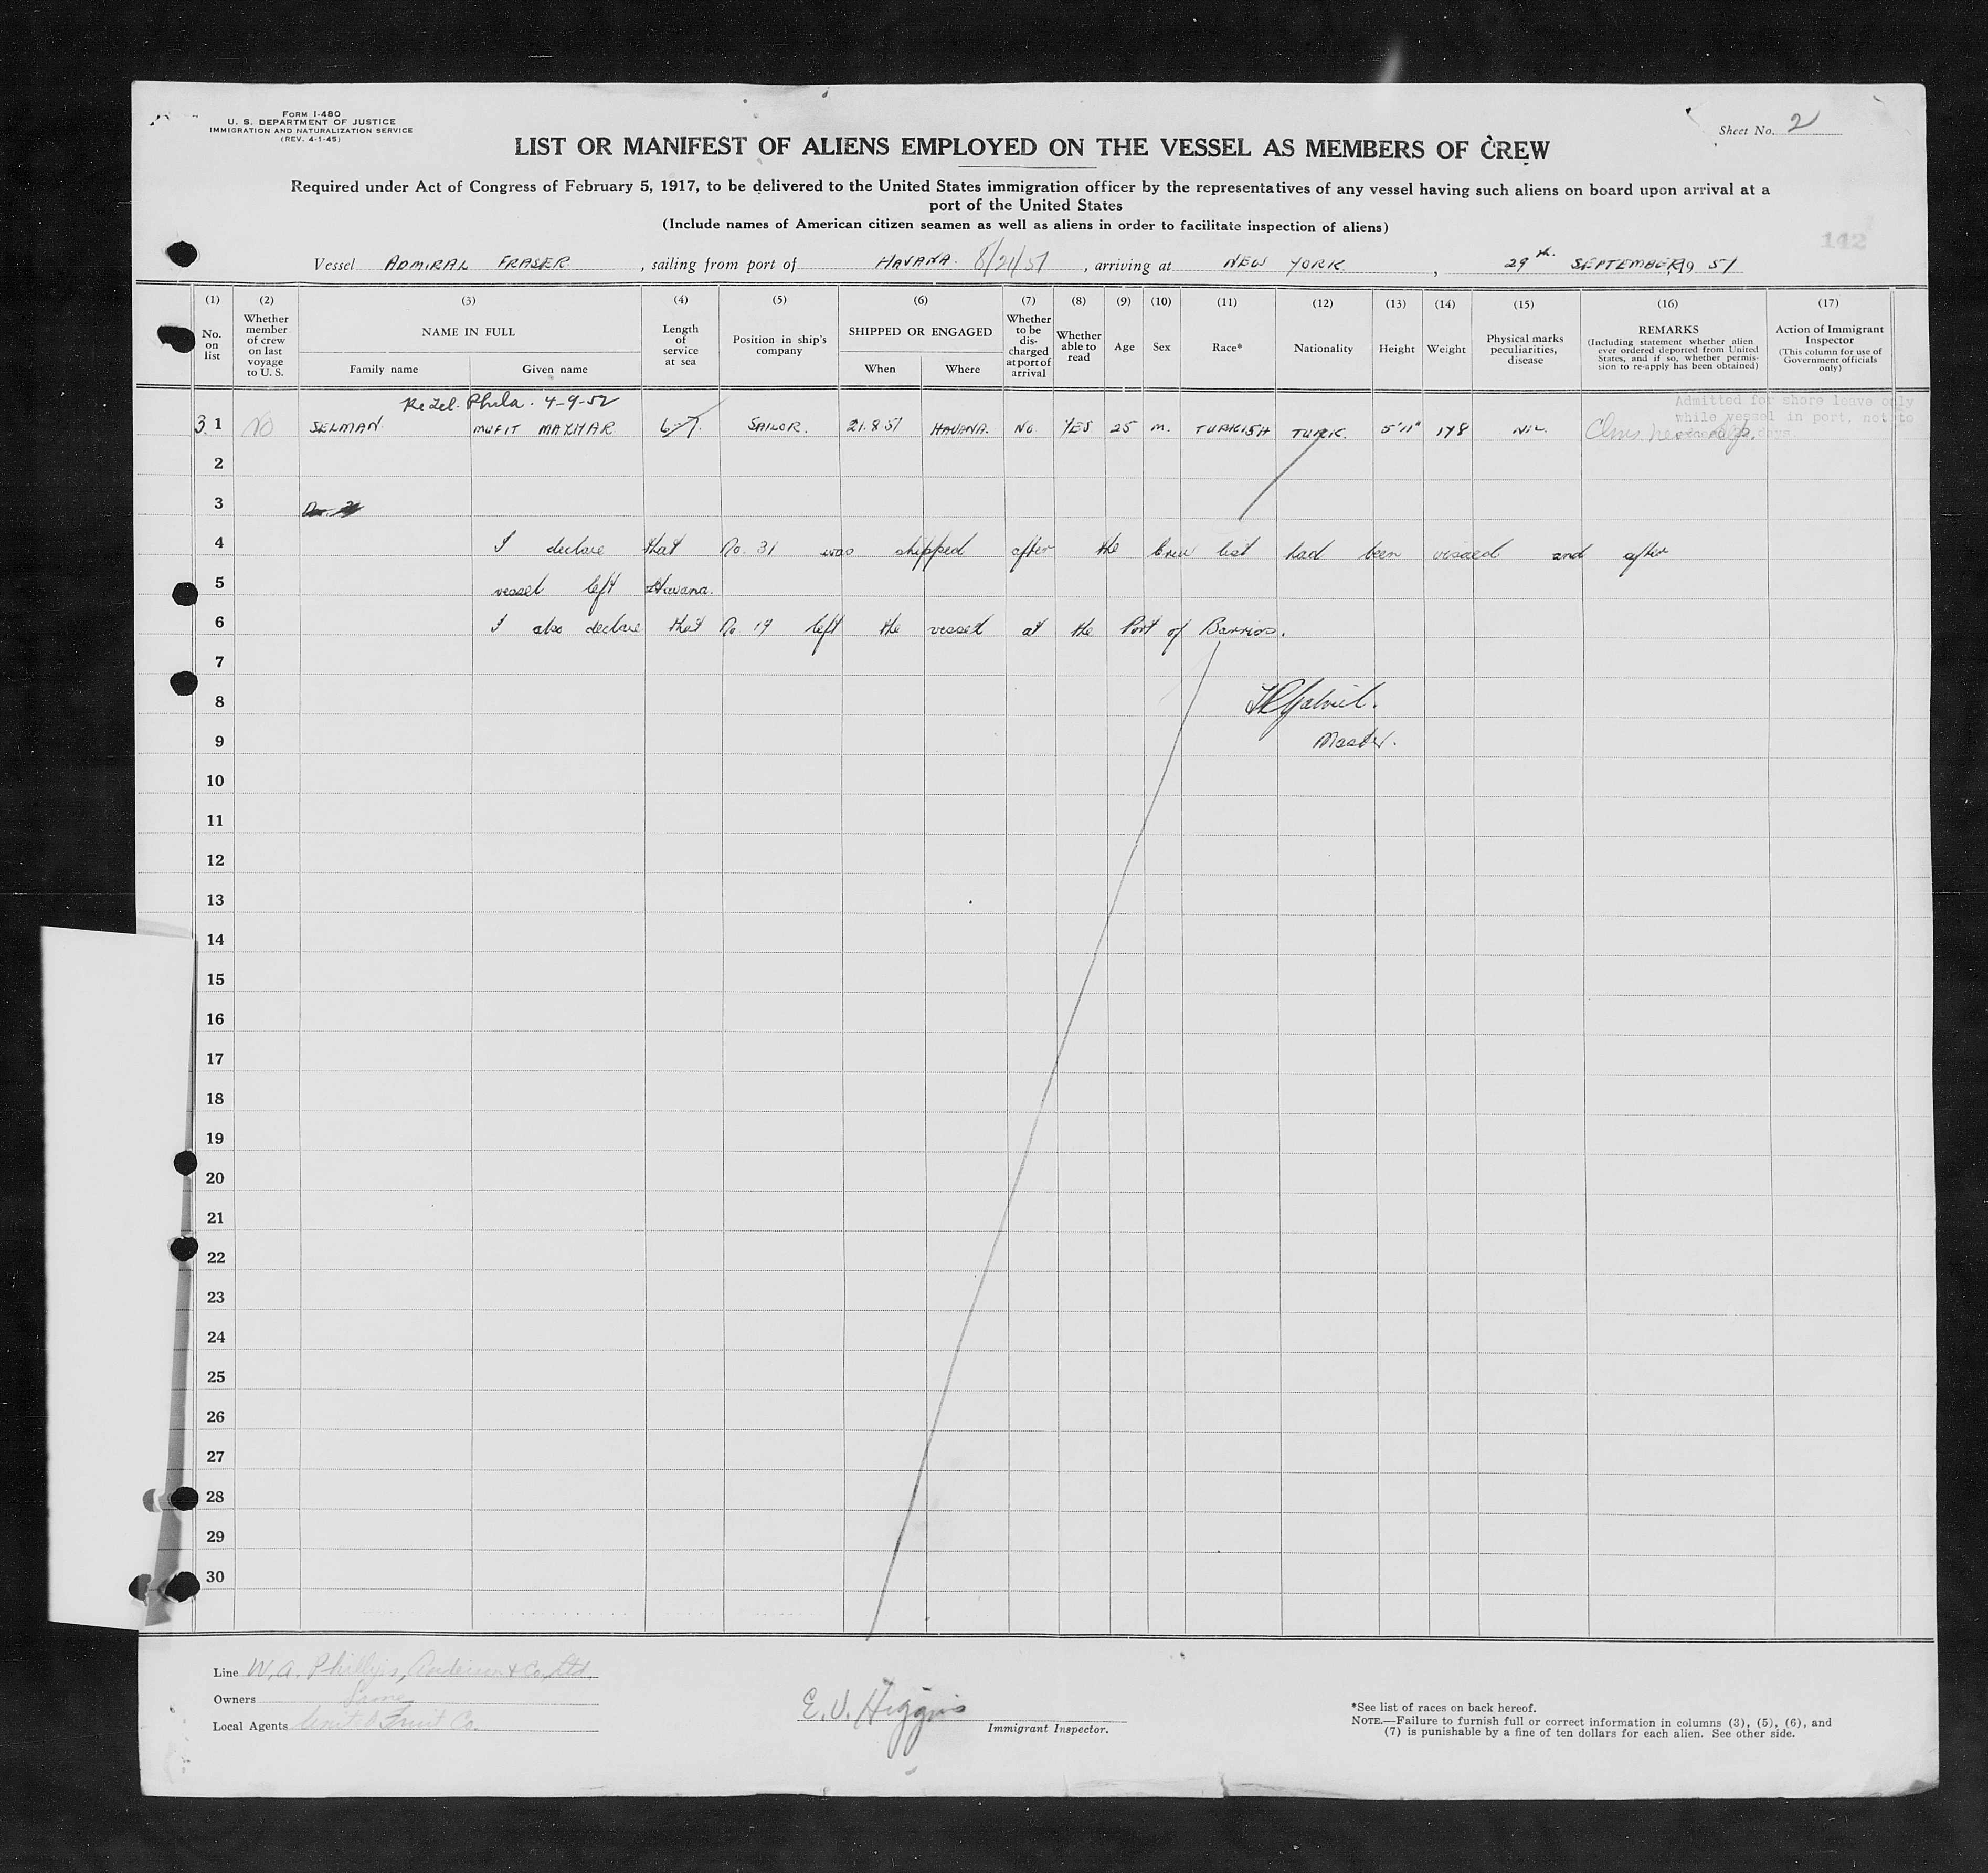 FORM I-480
U. S. DEPARTMENT OF JUSTICE
IMMIGRATION AND NATURALIZATION SERVICE
(REV. 4-1-45)
Sheet No. 2
LIST OR MANIFEST OF ALIENS EMPLOYED ON THE VESSEL AS MEMBERS OF CREW
Required under Act of Congress of February 5, 1917, to be delivered to the United States immigration officer by the representatives of any vessel having such aliens on board upon arrival at a
port of the United States
(Include names of American citizen seamen as well as aliens in order to facilitate inspection of aliens)
142
Vessel ADMIRAL FRASER, sailing from port of HAVANA. 8/21/51, arriving at NEW YORK, 29th SEPTEMBER, 19 51
(1) (2) (3) (4) (5) (6) (7) (8) (9) (10) (11) (12) (13) (14) (15) (16) (17)
No. on list
Whether member of crew on last voyage to U. S.
NAME IN FULL
Family name
Given name
Length of service at sea
Position in ship's company
SHIPPED OR ENGAGED
When
Where
Whether to be discharged at port of arrival
Whether able to read
Age
Sex
Race*
Nationality
Height
Weight
Physical marks peculiarities, disease
REMARKS
(Including statement whether alien ever ordered deported from United States, and if so, whether permission to re-apply has been obtained)
Action of Immigrant Inspector
(This column for use of Government officials only)
Phila. 4-9-52
Admitted for shore leave only
while vessel in port, not to
31 NO SELMAN MUFIT SAILOR. 21.8.51 HAVANA. NO. YES 25 M. TURKISH TURK. 5'11" 178 NIL.
2
3
4 I declare that No. 31 was shipped after the Crew list had been visaed and after
5 vessel left Havana.
6 I also declare that No 19 left the vessel at the Port of Barrios.
7
8
9 Master.
10
11
12
13
14
15
16
17
18
19
20
21
22
23
24
25
26
27
28
29
30
Line W. A. Phillips, Anderson & Co. Ltd.
Owners Same
Local Agents United Fruit Co.
E. V. Higgins
Immigrant Inspector.
*See list of races on back hereof.
NOTE.—Failure to furnish full or correct information in columns (3), (5), (6), and
(7) is punishable by a fine of ten dollars for each alien. See other side.